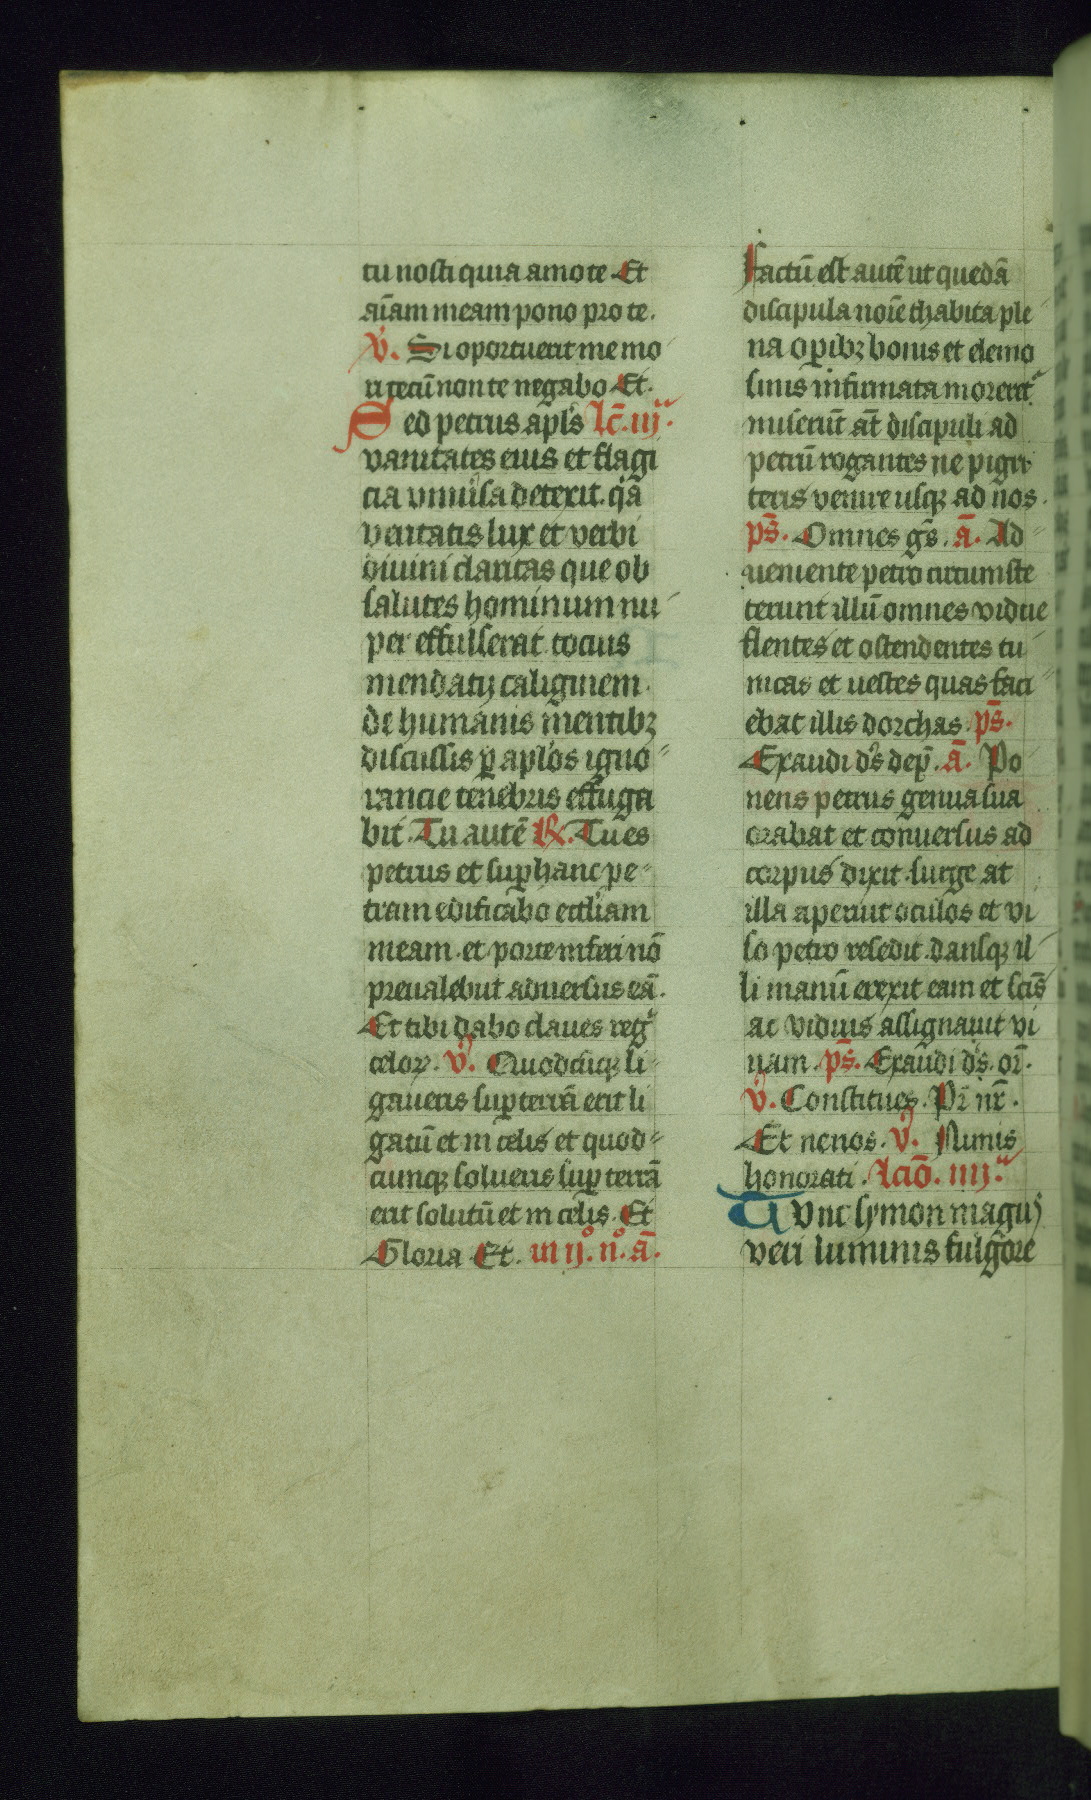 tu nosti quia amo te Et
aīam meam pono pro te.
v̾. Si oportuerit me mo
ri tecū non te negabo Et.
Sed petrus apl̄s lc̄. iij.ᵃ
vanitates eius et flagi
cia vniũsa detexit. q̇a
veritatis lux et verbi
diuini claritas que ob
salutes hominum nu
per effulserat tocius
mendatij caliginem.
de humanis mentibꝫ
discussis ꝑ apl̄os igno
rancie tenebris effuga
bit. Tu autē ℟. Tu es
petrus et suꝑ hanc pe
tram edificabo eccl̄iam
meam. et porte inferi nō
preualebut aduersus eā.
Et tibi dabo claues reg
celoꝝ. v̾. Quodcūqꝫ li
gaueris suꝑ terrā erit li
gatū et in celis et quod
cunqꝫ solueris suꝑ terrā
erit solutū et in celis. Et
Gloria Et. in ij.° n.° ā.
Factū est autē ut quedā
discipula noīe thabita ple
na oꝑibꝫ bonis et elemo
sinis infirmata moreret᷑
miserūt āt discipuli ad
petrū rogantes ne pigri
teris venire usqꝫ ad nos.
ps̄. Omnes gs̄. ā. Ad
ueniente petro circumste
terunt illū omnes vidue
flentes et ostendentes tu
nicas et uestes quas faci
ebat illis dorchas. ps̄.
Exaudi ds̄ dep̄. ā. Po
nens petrus genua sua
orabat et conuersus ad
corpus dixit. surge at
illa aperiut oculos et vi
so petro resedit. dansqꝫ il
li manū erexit eam et scīs
ac viduis assignauit vi
uam. ps̄. Exaudi ds̄. or̄.
v̾. Constitues. Pr̄ nr̄.
Et ne nos. v̾. Nimis
honorati. lciō. iiij.ᵃ
Tunc symon magus
veri luminis fulgore